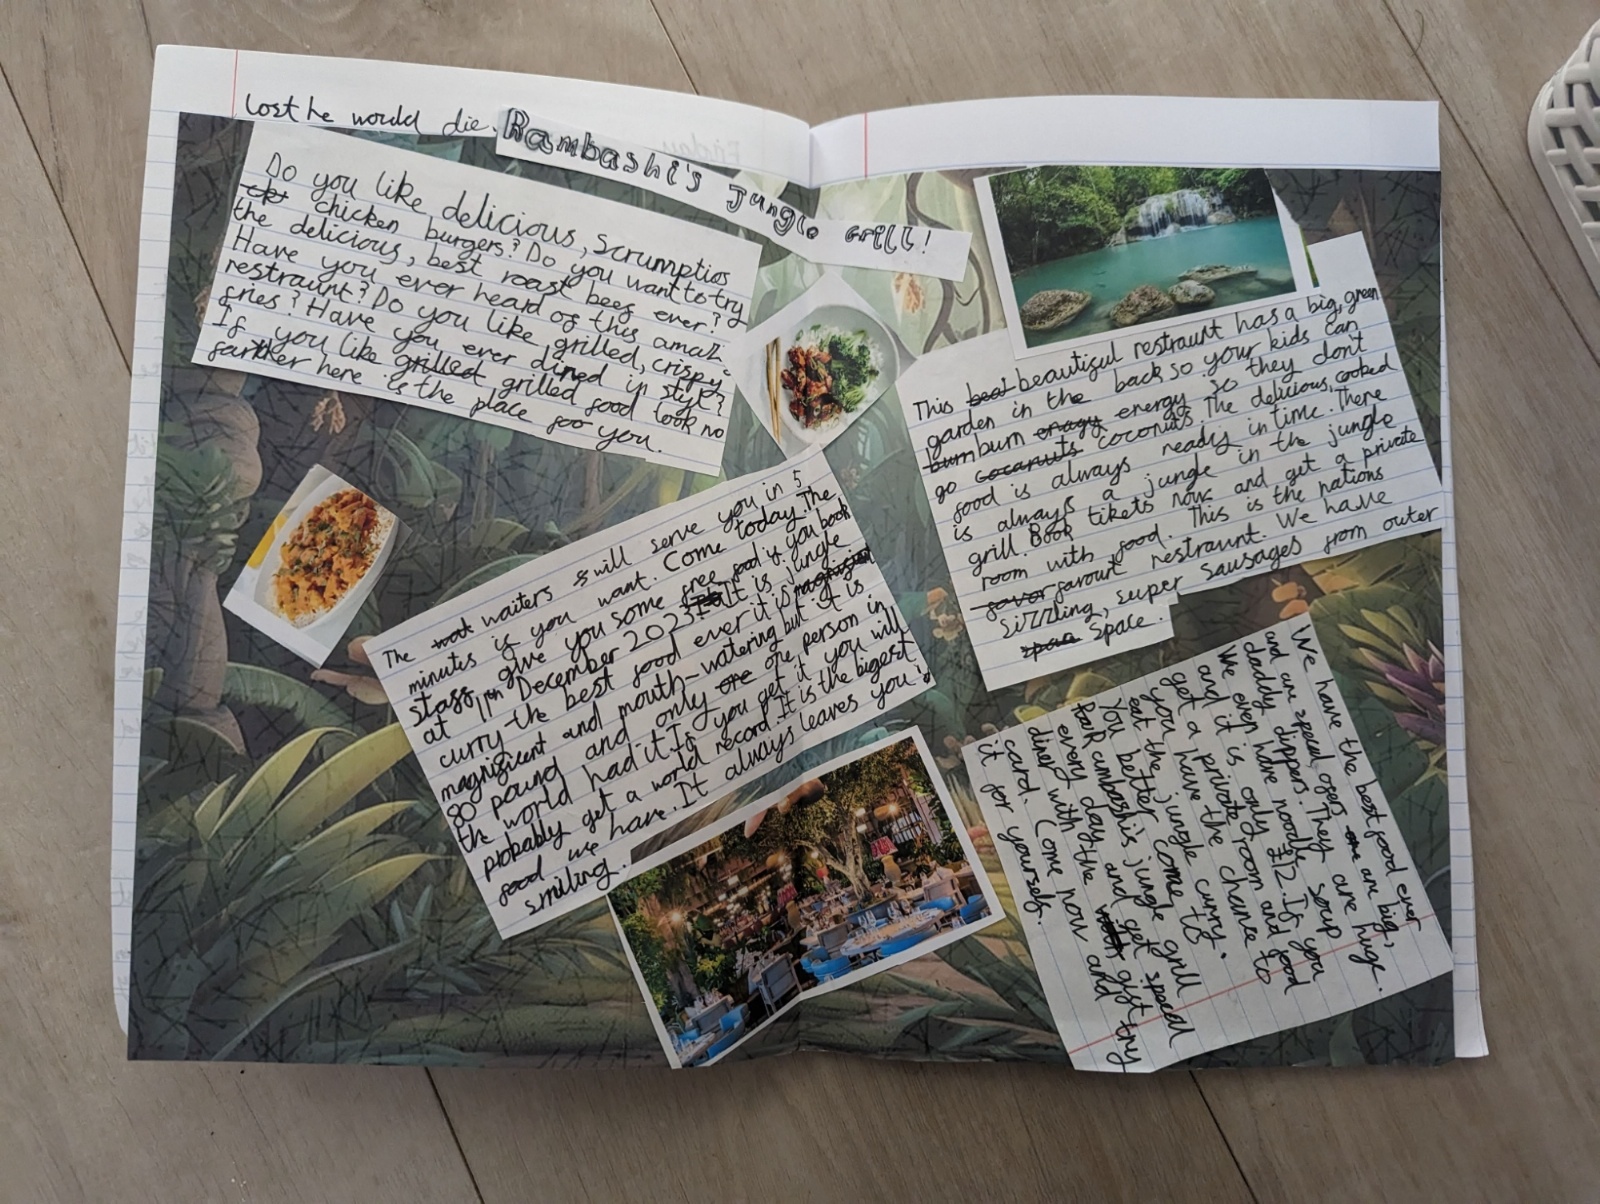 lost he would die.
Rambashi's jungle Grill!
Do you like delicious, scrumptios
chicken burgers? Do you want to try
the delicious, best roast beef ever?
Have you ever heard of this amazi
restraunt? Do you like, grilled, crispy
fries? Have you ever dined in style?
If you like grilled grilled food look no
farther here is the place for you.
The waiters will serve you in 5
minutes if you want. Come today. The
staff give you some free food if you book
at 11th December 2023. It is jungle
curry the best food ever it is
magnificent and mouth-watering but it is
80 pound and only one person in
the world had it. If you get it you will
probably get a world record. It is the biggest
food we have. It always leaves you
smiling.
This beautiful restraunt has a big, green
garden in the back so your kids can
burn burn energy so they don't
go cocanuts coconuts. The delicious, cooked
food is always ready in time. There
is always a jungle in the jungle
grill. Book tikets now and get a private
room with food. This is the nations
favor favourt restraunt. We have
sizzling, super sausages from outer
space.
We have the best food ever
and an special offers are big,
daddy dippers. They are huge.
We even have noodle soup
and it is only £12. If you
get a private room and food
you have the chance to
eat the jungle curry.
You better come to
Rambashi's jungle grill
every day and get speed
diner with the gift
card. Come now and try
it for yourself.